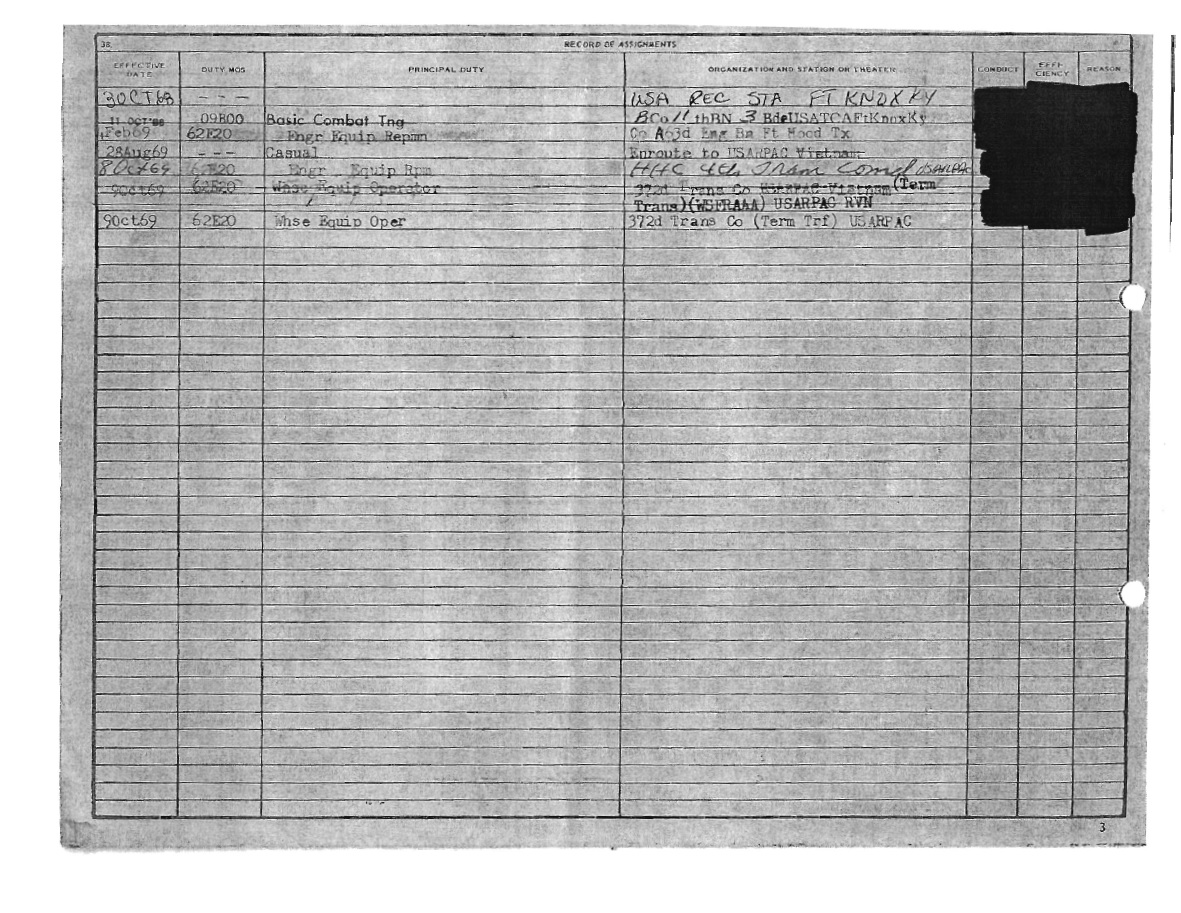 38. RECORD OF ASSIGNMENTS
EFFECTIVE DATE DUTY MOS PRINCIPAL DUTY ORGANIZATION AND STATION OR THEATER CONDUCT EFFI- CIENCY REASON
3OCT68 - - - USA REC STA FT KNOX KY
11 OCT'68 09B00 Basic Combat Tng BCo 11 thBN 3 BdeUSATCAFtKnoxKy
Feb69 62E20 Engr Equip Repmn Co A 63d Eng Bn Ft Hood Tx
28Aug69 - - - Casual Enroute to USARPAC Vietnam
8Oct69 62E20 Engr Equip Rpm HHC 4th Trans Comd USARPAC
9Oct69 62E20 Whse Equip Operator 372d Trans Co USARPAC Vietnam (Term
Trans)(WSFRAAA) USARPAC RVN
9Oct69 62E20 Whse Equip Oper 372d Trans Co (Term Trf) USARPAC
3